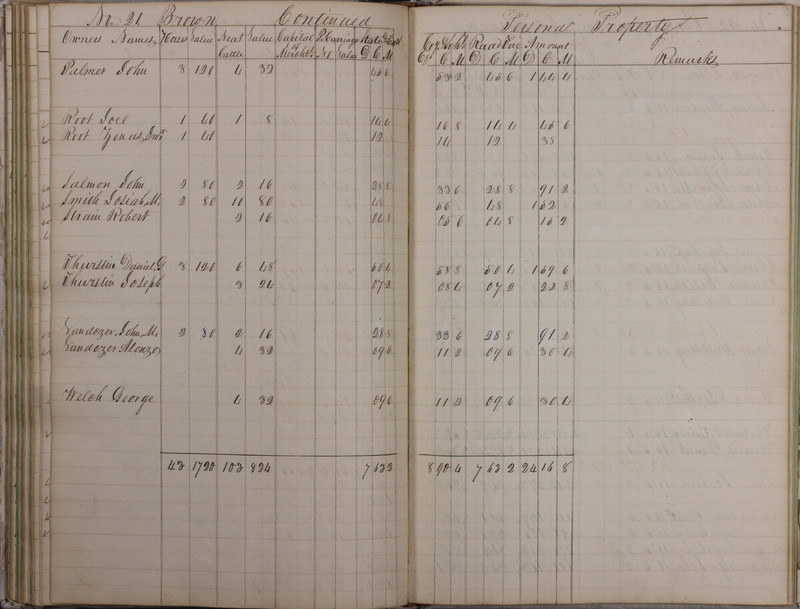 No 21 Brown Continued Personal Property
Owners Names, Horses Value Neat Cattle Value Capital Mercht P. Carriages No Value State & D C M Co. & Sch D C M Road Tax D C M Amount D C M Remarks
Palmer John 3 120 4 32 456 532 456 1 44 4
Root Joel 1 40 1 8 144 16 8 14 4 45 6
Root Zenas, Jnr 1 40 12 14 12 38
Salmon John 2 80 2 16 288 33 6 28 8 91 2
Smith Josiah M. 2 80 10 80 48 56 48 1 52
Strain Robert 2 16 048 05 6 04 8 15 2
Thurstin Daniel, G 3 120 6 48 504 58 8 50 4 1 59 6
Thurstin Joseph 3 24 072 08 4 07 2 22 8
Vandozer, John, M. 2 80 2 16 288 33 6 28 8 91 2
Vandozer Alonzo 4 32 096 11 2 09 6 30 4
Welch George 4 32 096 11 2 09 6 30 4
43 1720 103 824 7 632 8 90 4 7 63 2 24 16 8